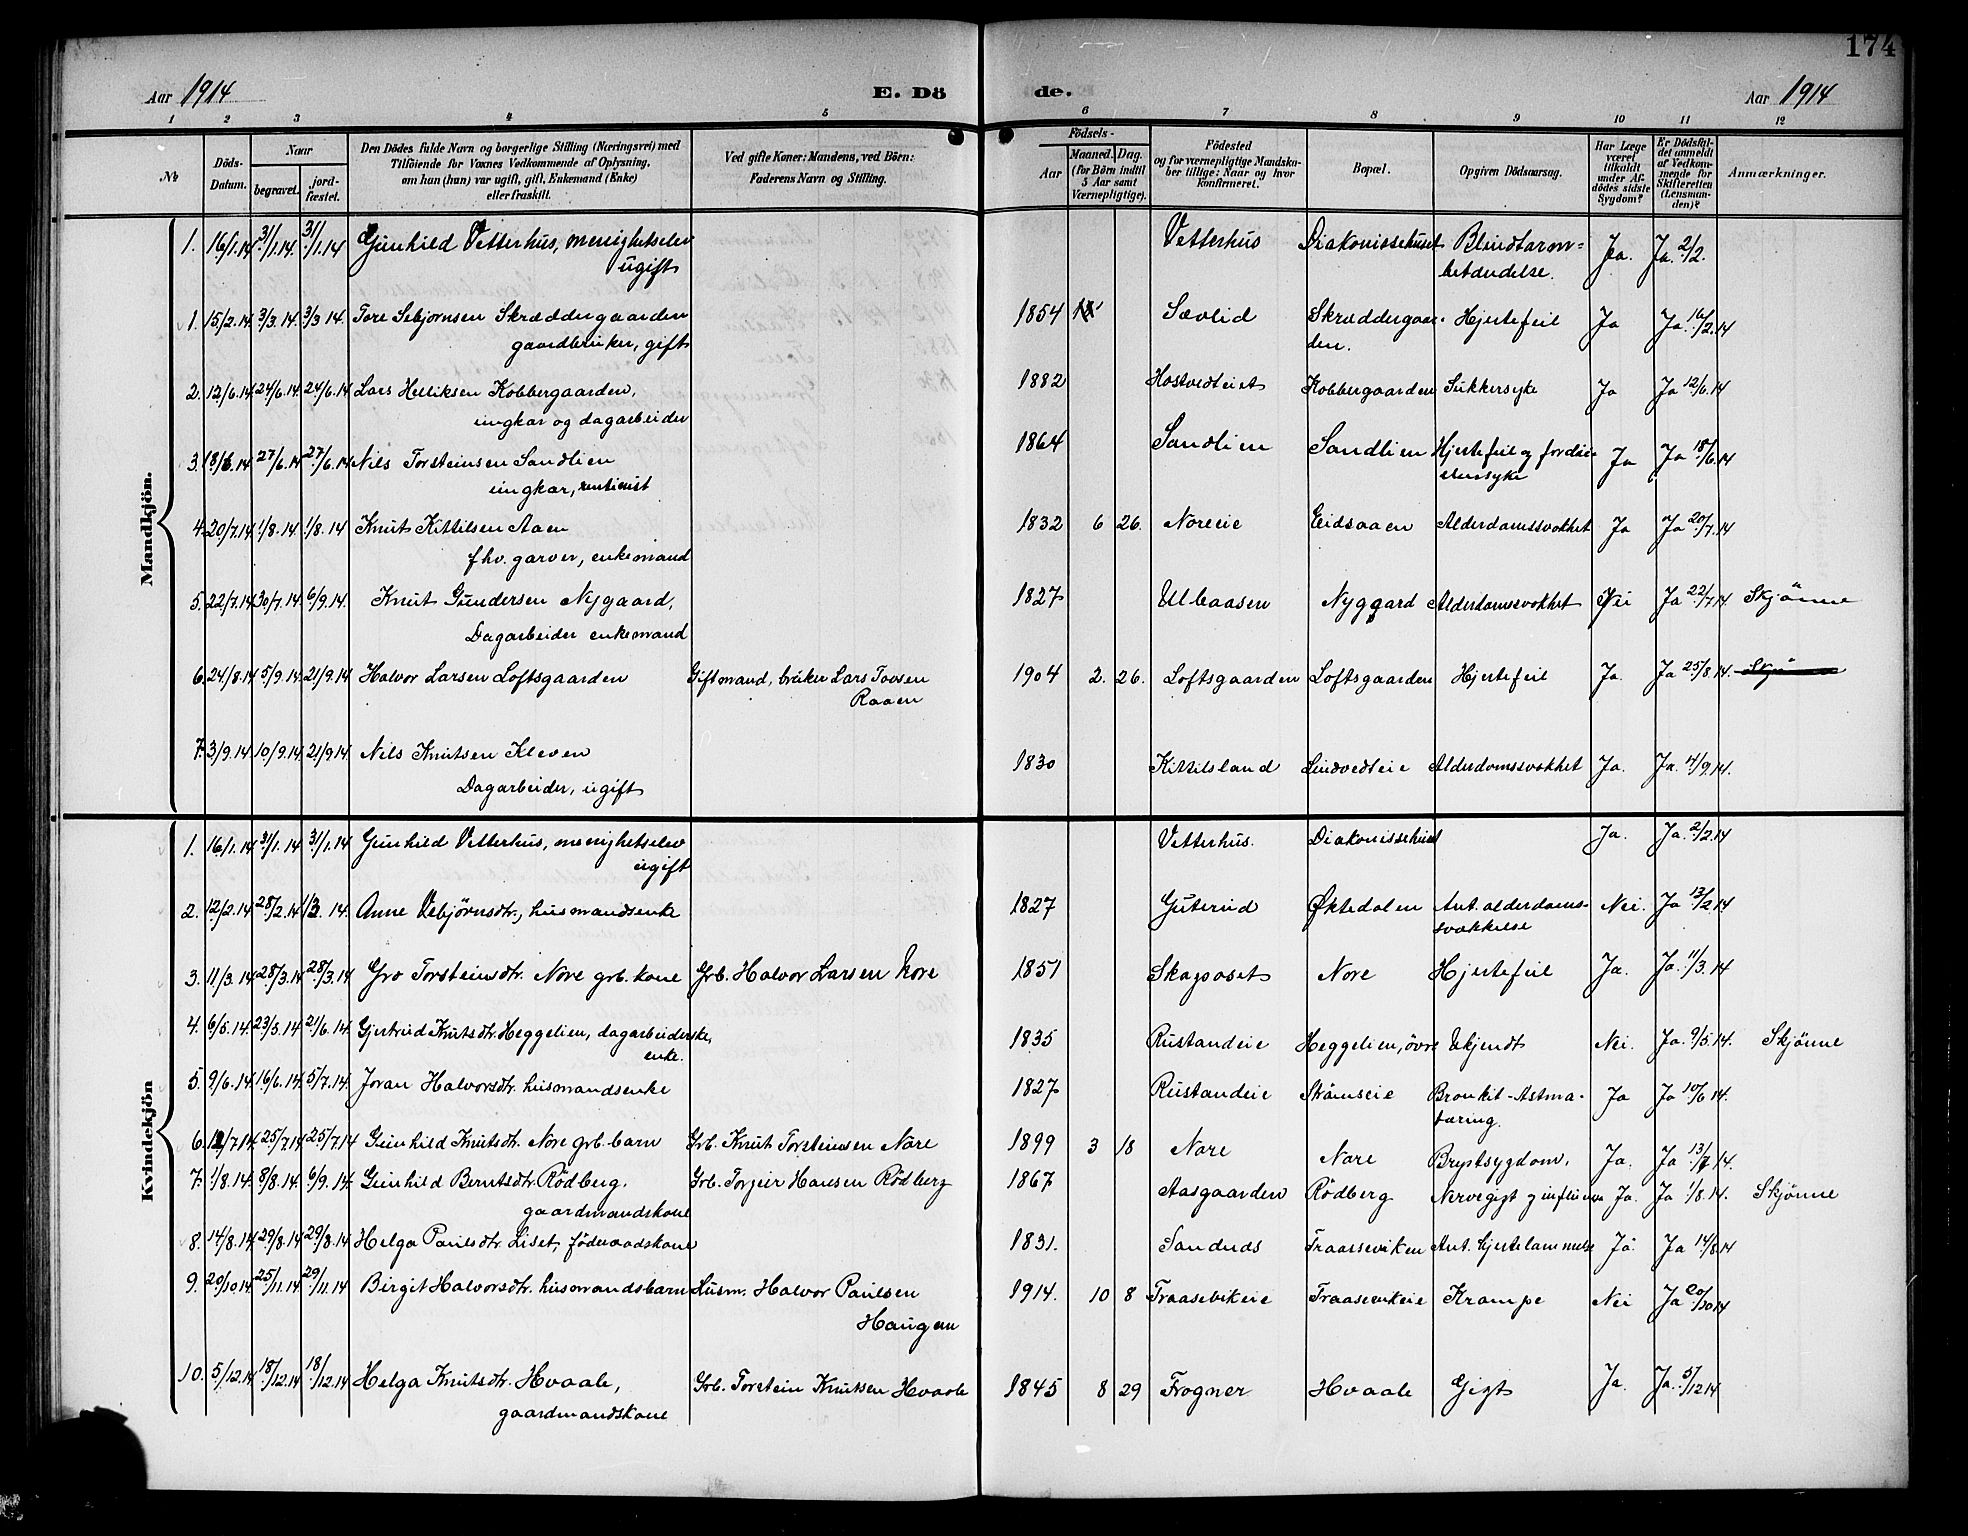 174
Aar 1914 E. Dö de. Aar 1914
1 2 3 4 5 6 7 8 9 10 11 12
No
Döds-
Datum.
Naar
begravet.
jord-
fæstet.
Den Dödes fulde Navn og borgerlige Stilling (Næringsvei) med
Tilföiende for Voxnes Vedkommende af Oplysning,
om han (hun) var ugift, gift, Enkemand (Enke)
eller fraskilt.
Ved gifte Koner: Mandens, ved Börn:
Faderens Navn og Stilling.
Födsels-
Aar
Maaned. Dag.
(for Börn indtil
5 Aar samt
Værnepligtige).
Födested
og for værnepligtige Mandska-
ber tillige: Naar og hvor
konfirmeret.
Bopæl.
Opgiven Dödsaarsag.
Har Læge
været
tilkaldt
under Af-
dödes sidste
Sygdom?
Er Dödsfal-
det anmeldt
af Vedkom-
mende for
Skifteretten
(Lensman-
den)?
Anmærkninger.
Mandkjön.
1. 16/1.14 31/1.14. 31/1.14 Gunhild Vetterhus, menighetselev Vetterhus Diakonissehuset Blindtarm- Ja. Ja. 2/2.
ugift betændelse.
1. 15/2.14. 3/3.14. 3/3 14. Tore Sebjørnsen Skræddergaarden 1854 Sævlid Skræddergaar- Hjertefeil Ja Ja. 16/2.14
gaardbruker, gift den.
2. 12/6.14 24/6.14. 24/6.14 Lars Helliksen Kobbergaarden, 1882 Hostvedteiet Kobbergaarden Sukkersyke Ja Ja 12/6.14
ungkar og dagarbeider
3. 18/6.14 27/6.14 27/6.14 Nils Torsteinsen Sandlien 1864 Sandlien Sandlien Hjertefeil og fordøi- Ja Ja 18/6.14
ungkar, rentenist elsessyke
4. 20/7.14 1/8.14 1/8.14 Knut Kittilsen Aaen 1832 6 26. Noreeie Eidsaaen Alderdomssvakhet Ja Ja 20/7.14
fhv. garver, enkemand
5. 22/7.14 30/7.14. 6/9.14. Knut Gundersen Nygaard, 1827 Ulbaasen Nyggard Alderdomssvakhet Nei Ja 22/7.14. Skjönne
Dagarbeider enkemand
6. 24/8.14 5/9.14. 21/9.14 Halvor Larsen Loftsgaarden Giftmand, bruker Lars Tovsen 1904 2. 26. Loftsgaarden Loftsgaarden Hjertefeil Ja. Ja 25/8.14.
Raaen
7. 3/9.14. 10/9.14 21/9 14. Nils Knutsen Kleven 1830 Kittilsland Lindvedteie Alderdomssvakhet Ja. Ja. 4/9.14.
Dagarbeider, ugift
Kvindekjön
1. 16/1.14 31/1.14 31/1.14 Gunhild Vetterhus, menighetselev Vetterhus. Diakonissehuset Ja. Ja. 2/2.14
ugift
2. 12/2.14 28/2.14 1/3. 14. Anne Vebjørnsdtr., husmandsenke 1827 Guterud Øktedalen Ant. alderdoms- Nei. Ja 13/2 14
svækkelse
3. 11/3.14 28/3.14 28/3.14 Gro Torsteinsdtr. Nore grb. kone Grb. Halvor Larsen Nore 1851 Skagsoset Nore Hjertefeil Ja. Ja. 11/3.14
4. 6/5.14. 23/5.14 21/6.14. Gjertrud Knutsdtr. Heggelien, dagarbeiderske, 1835 Rustandeie Heggelien, övre Ukjendt Nei. Ja. 9/5.14. Skjønne
enke.
5. 9/6.14 16/6.14. 5/7.14. Joran Halvorsdtr. husmandsenke 1827 Rustandeie Strømseie Bronkit-Astma- Ja Ja 10/6 14.
tæring.
6. 12/7.14 25/7.14 25/7.14 Gunhild Knutsdtr. Nore grb. barn Grb. Knut Torsteinsen Nore 1899 3 18 Nore Nore Brystsygdom, Ja. Ja 13/7 14.
7. 1/8.14. 8/8.14. 6/9.14. Gunhild Berntsdtr. Rödberg, Grb. Torgeir Hansen Rödberg 1867 Aasgaarden Rödberg Nervegigt og influensa Ja. Ja 1/8.14. Skjønne
gaardmandskone
8. 14/8.14. 29/8.14 29/8.14 Helga Paulsdtr. Liset, föderaadskone 1831. Sanduds Traasseviken Ant. hjertelammelse Ja. Ja 14/8.14
9. 20/10.14 25/11.14 29/11.14 Birgit Halvorsdtr. husmandsbarn Husm. Halvor Paulsen 1914. 10 8 Traasevikeie Traasevikeie Krampe Nei Ja 20/10 14
Haugen
10. 5/12.14 18/12.14 18/12.14 Helga Knutsdtr. Hvaale, Grb. Torstein Knutsen Hvaale 1845 8 29 Frogner Hvaale Gigt Ja. Ja. 5/12 14
gaardmandskone